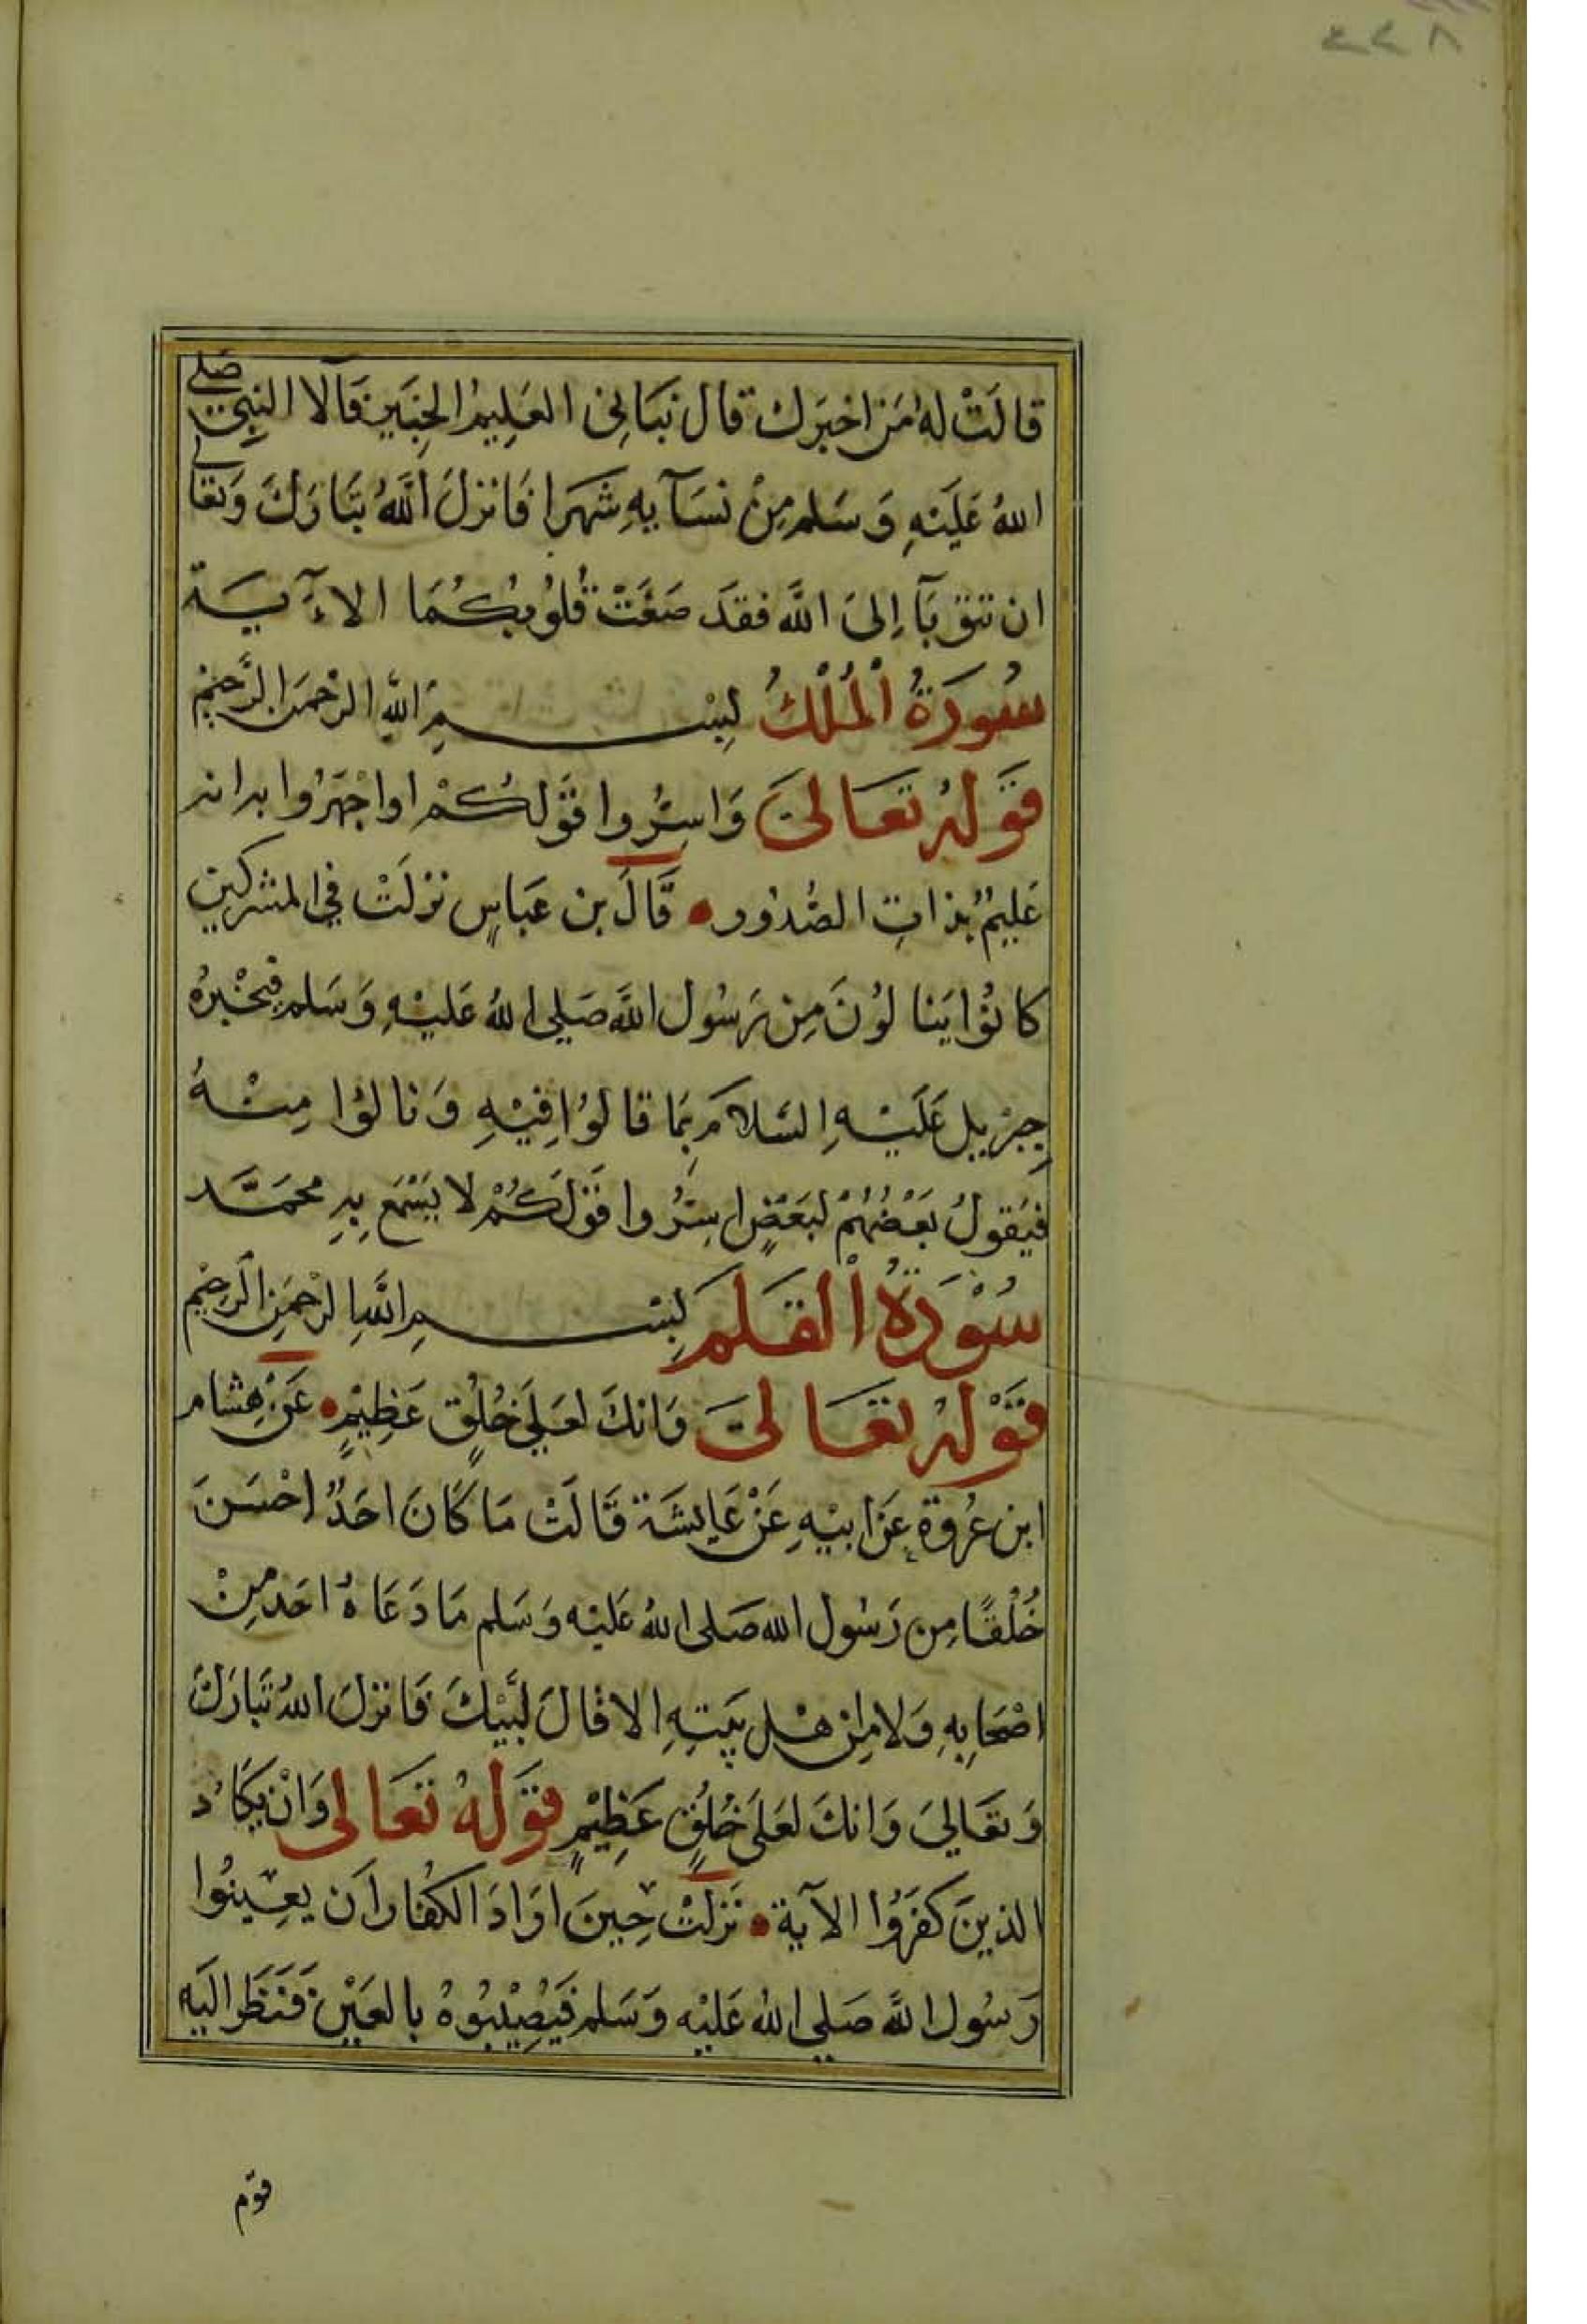 ٤٤٨
قالَتْ لهُ مَن اخبَرك قال نبَانِى العَلِيمُ الخبَير فآلا النِبي صَلى
اللهُ عَلَيْهِ وَسَلم مِنْ نسَآيهِ شهَرا فَانزلَ اللَّهُ تبَارَكَ وَتعَالى
ان تتوبَآ إلىَ اللَّه فقدَ صَغَتْ قُلوُبُكُمَا الاٰيَة
سُورَةُ الْمُلْكُ لِبسْمِ اللَّهِ الرّحْمنَ الرَّحيْم
قَوَلهُ تعَالىَ وَاسِرُّوا قَوَلكُمْ اواجْهَرُوا به انه
عَليِمٌ بذاتِ الصُّدُور • قَالَ بن عَباسٍ نزلَتْ فيِ المشركين
كانوُا يَنالوُنَ مِن رَسُول اللَّه صَلى اللهُ عَليْهِ وَسَلم فيخْبرهُ
جِبْريل عَلَيْهِ السَّلامَ بمَا قالوُا فِيْهِ وَنالوُا مِنْهُ
فيَقولُ بعَضهُمْ لبَعَضٍ اسِرُّوا قَوْلَكُمْ لا يَسْمَع بهِ محمَّد
سُوْرَةُ الْقَلَم لِبسْمِ اللَّهِ الرحْمَنِ الرحيْم
قَوْلهُ تعَالىَ وَانكَ لعَلىَ خُلُقٍ عَظِيْمٍ • عَنْ هِشام
ابن عُروَة عَن ابيْهِ عَنْ عَايشَة قَالَتْ مَا كَانَ احَدٌ احْسَنَ
خُلْقًا مِن رَسُول الله صَلى اللهُ عَليْه وَسَلم مَا دَعَاهُ احَد مِنْ
اصْحَابِهِ وَلا مِن اهْل بَيتِهِ الا قالَ لبَّيْكَ فَانزلَ اللهُ تَبارَكَ
وَتعَالىَ وَانكَ لعَلىَ خُلُقٍ عَظِيْمٍ قَوَلهُ تعَالى وَانْ يكَادُ
الذينَ كفَرُوا الآيَة • نَزلتْ حِينَ ارَادَ الكفُار ان يعِينُوا
رَسُول اللَّه صَلى اللهُ عَليْه وَسَلم فَيُصِيْبُوهُ بالعَيْن فَنظَر اليَه
قوم